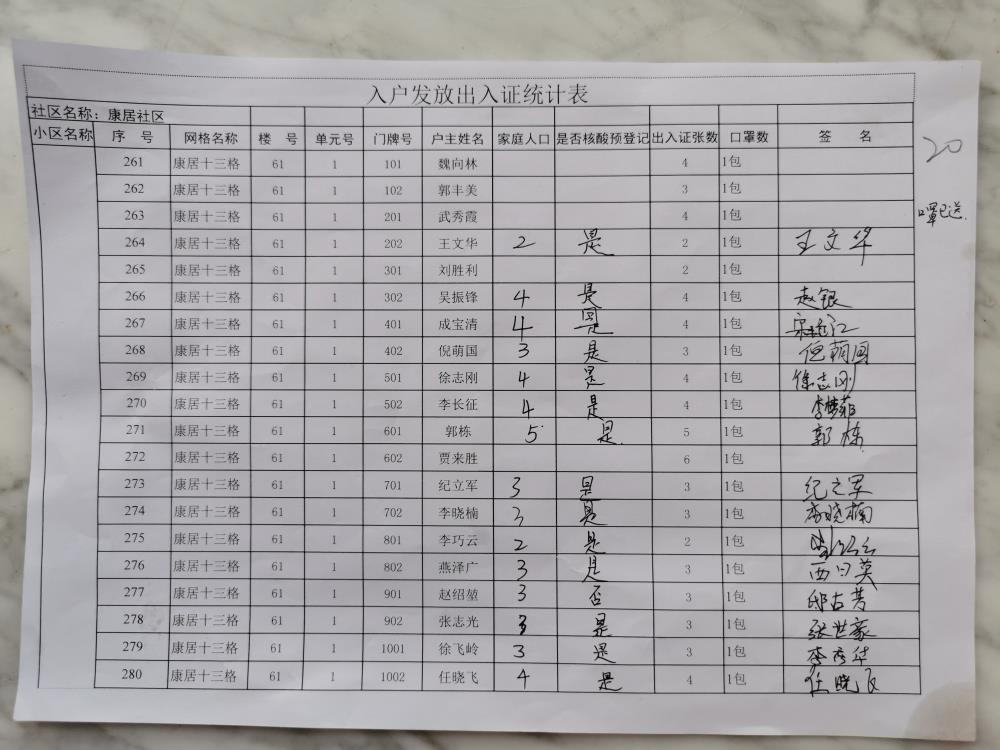 入户发放出入证统计表
社区名称：康居社区
小区名称 序 号 网格名称 楼 号 单元号 门牌号 户主姓名 家庭人口 是否核酸预登记 出入证张数 口罩数 签 名
20
261 康居十三格 61 1 101 魏向林 4 1包
262 康居十三格 61 1 102 郭丰美 3 1包
263 康居十三格 61 1 201 武秀霞 4 1包
口罩已送.
264 康居十三格 61 1 202 王文华 2 是 2 1包 王文华
265 康居十三格 61 1 301 刘胜利 2 1包
266 康居十三格 61 1 302 吴振锋 4 是 4 1包 赵银
267 康居十三格 61 1 401 成宝清 4 是 4 1包
268 康居十三格 61 1 402 倪萌国 3 是 3 1包 倪萌国
269 康居十三格 61 1 501 徐志刚 4 是 4 1包 徐志刚
270 康居十三格 61 1 502 李长征 4 是 4 1包
271 康居十三格 61 1 601 郭栋 5 是 5 1包 郭栋
272 康居十三格 61 1 602 贾来胜 6 1包
273 康居十三格 61 1 701 纪立军 3 是 3 1包 纪立军
274 康居十三格 61 1 702 李晓楠 3 是 3 1包 李晓楠
275 康居十三格 61 1 801 李巧云 2 是 2 1包
276 康居十三格 61 1 802 燕泽广 3 是 3 1包
277 康居十三格 61 1 901 赵绍堃 3 否 3 1包
278 康居十三格 61 1 902 张志光 3 是 3 1包 张世豪
279 康居十三格 61 1 1001 徐飞岭 3 是 3 1包 李彦华
280 康居十三格 61 1 1002 任晓飞 4 是 4 1包 任晓飞